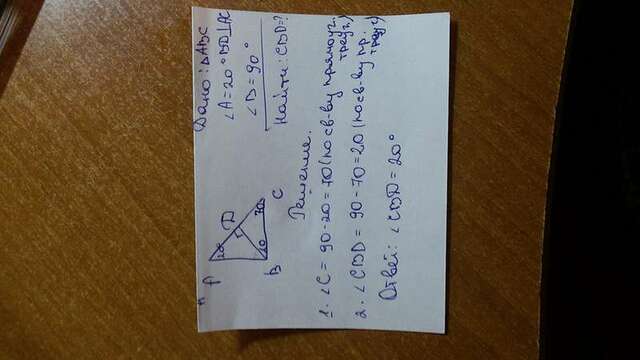 A
20°
D
B 20 70
C
Дано: △ABC
∠A=20° BD⊥AC
∠B=90°
Найти: CBD=?
Решение.
1. ∠C = 90-20=70 (по св-ву прямоуг. треуг.)
2. ∠CBD = 90-70=20 (по св-ву пр. треуг.)
Ответ: ∠CBD=20°